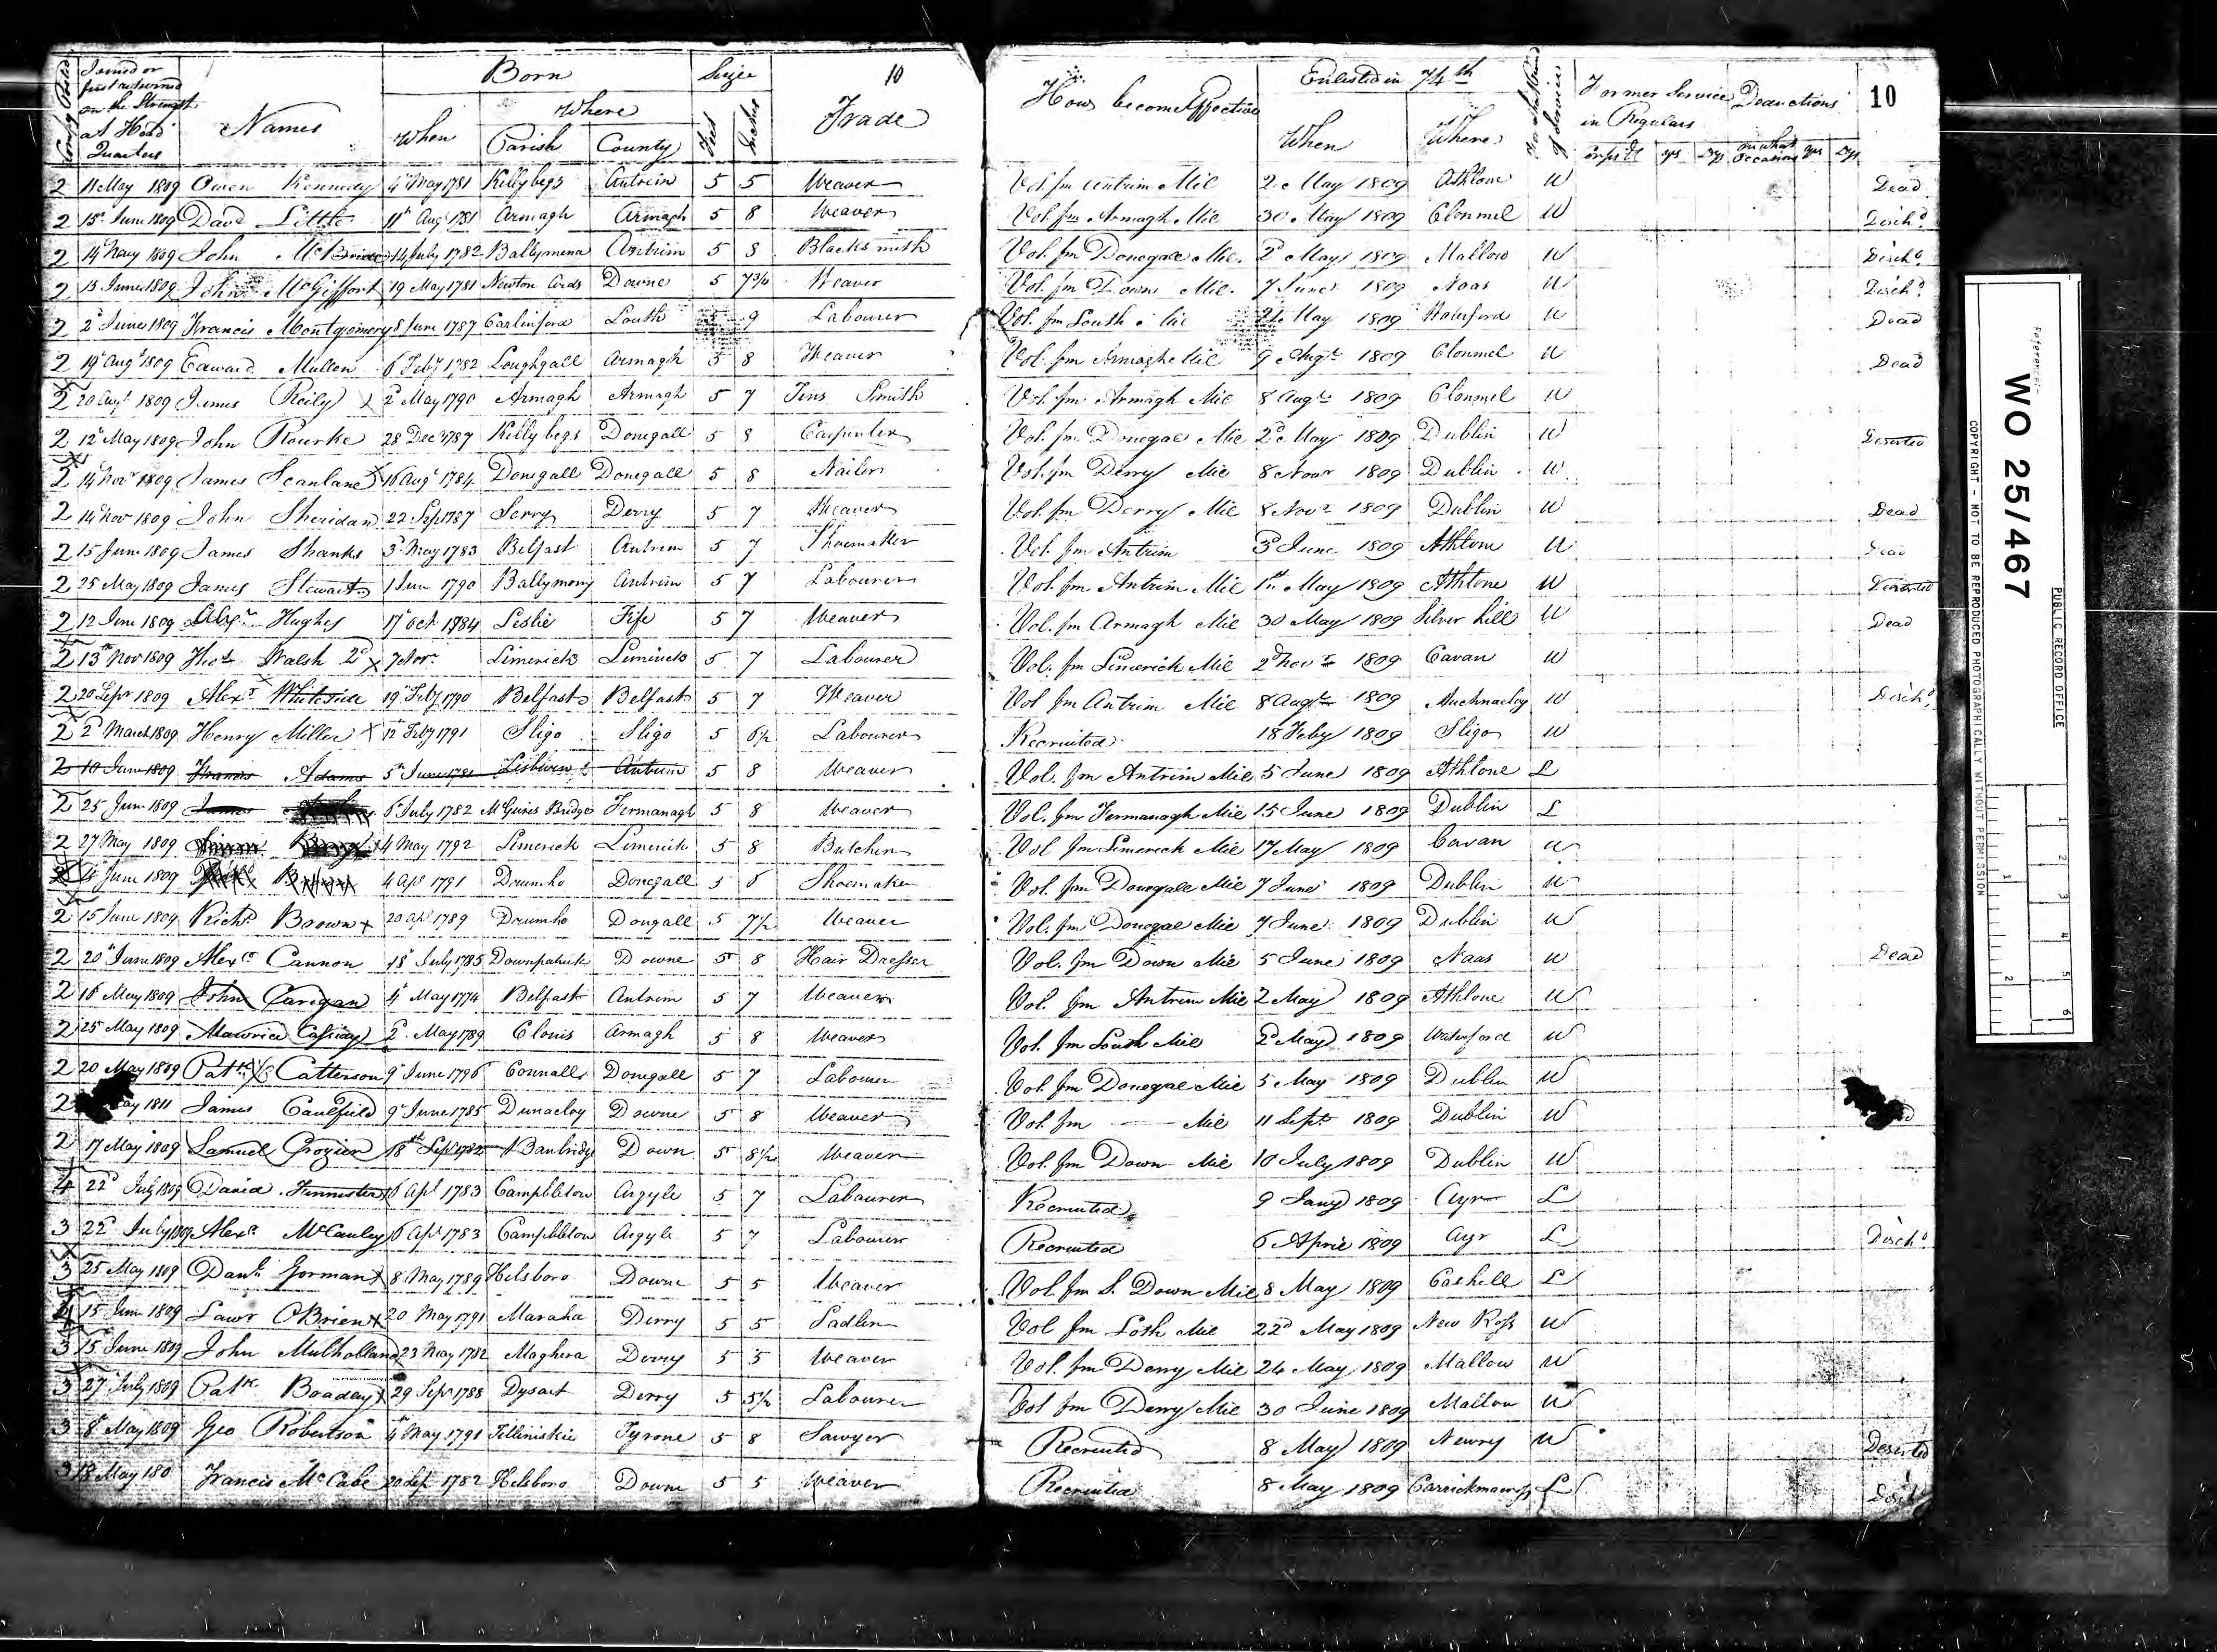 Joined or first returned on the Strength at Head Quarters
Names
Born
When
Where
Parish
County
Size
Feet
Inches
10
Trade
How become Effective
Enlisted in 74th
When
Where
of Service
Former Service in Regulars
yrs
Dys
Deductions
on what Occasions
yrs
Dys
10
2 11 May 1809 Owen Kennedy 4th May 1781 Killybegs Antrim 5 5 Weaver Vol. fm Antrim Mil 2d May 1809 Athlone W Dead
2 15 June 1809 David Little 11th Augt 1781 Armagh Armagh 5 8 Weaver Vol. fm Armagh Mil 30 May 1809 Clonmel W Disch.d
2 14 May 1809 John McBride 14 July 1782 Ballymena Antrim 5 8 Blacksmith Vol. fm Donegal Mil. 2d May 1809 Mallow W Disch.d
2 15 June 1809 John McGiffort 19 May 1781 Newton Ards Downe 5 7 3/4 Weaver Vol. fm Down Mil. 7 June 1809 Naas W Disch.d
2 2d June 1809 Francis Montgomery 8 June 1787 Carlinford Louth 9 Labourer Vol. fm Louth Mil 24 May 1809 Waterford W Dead
2 19 Augt 1809 Edward Mullen 6 Feby 1782 Loughgall Armagh 5 8 Weaver Vol. fm Armagh Mil 9 Augt 1809 Clonmel W Dead
2 20 Augt 1809 James Reily x 2d May 1790 Armagh Armagh 5 7 Tins Smith Vol. fm Armagh Mil 8 Augt 1809 Clonmel W
2 12 May 1809 John Rourke 28 Decr 1787 Killybegs Donegall 5 8 Carpenter Vol. fm Donegal Mil 2d May 1809 Dublin W Deserted
2 14 Novr 1809 James Scanlane x 16 Augt 1784 Donegall Donegall 5 8 Nailor Vol. fm Derry Mil 8 Novr 1809 Dublin W
2 14 Novr 1809 John Sheridan 22 Sep 1787 Derry Derry 5 7 Weaver Vol. fm Derry Mil 8 Novr 1809 Dublin W Dead
2 15 June 1809 James Shanks 3d May 1783 Belfast Antrim 5 7 Shoemaker Vol. fm Antrim 3d June 1809 Athlone W Dead
2 25 May 1809 James Stewart 1 June 1790 Ballymony Antrim 5 7 Labourer Vol. fm Antrim Mil 1st May 1809 Athlone W Deserted
2 12 June 1809 Hughes 17 Oct 1784 Leslie Fife 5 7 Weaver Vol. fm Armagh Mil 30 May 1809 Silver hill W Dead
2 13th Nov 1809 Thos Walsh 2d x 7 Novr Limerick Limerick 5 7 Labourer Vol. fm Limerick Mil 2d Novr 1809 Cavan W
2 20 Sepr 1809 Alexr Whiteside 19 Feby 1790 Belfast Belfast 5 7 Weaver Vol fm Antrim Mil 8 Augt 1809 Auchnacloy W Disch.d
2 2d March 1809 Henry Miller x 12 Feby 1791 Sligo Sligo 5 6½ Labourer Recruited 18 Feby 1809 Sligo W
2 10 June 1809 Francis Adams 5th June 1781 Lisburn Antrim 5 8 Weaver Vol. fm Antrim Mil 5 June 1809 Athlone L
2 25 June 1809 James 6 July 1782 McGuires Bridge Fermanagh 5 8 Weaver Vol. fm Fermanagh Mil 15 June 1809 Dublin L
2 27 May 1809 4 May 1792 Limerick Limerick 5 8 Butcher Vol fm Limerick Mil 17 May 1809 Cavan W
June 1809 4 Apr 1791 Drumho Donegall 5 Shoemaker Vol. fm Donegall Mil 7 June 1809 Dublin W
2 15 June 1809 Richd Brown x 20 Apl 1789 Drumho Dongall 5 7½ Weaver Vol. fm Donegal Mil 7 June 1809 Dublin W
2 20th June 1809 Alexr Cannon 18 July 1785 Downpatrick Downe 5 8 Hair Dresser Vol. fm Down Mil 5 June 1809 Naas W Dead
2 16 May 1809 John Caregan 4 May 1774 Belfast Antrim 5 7 Weaver Vol. fm Antrim Mil 2 May 1809 Athlone W
2 25 May 1809 Maurice Casiday 2d May 1789 Clonis Armagh 5 8 Weaver Vol. fm Louth Mil 2d May 1809 Waterford W
2 20 May 1809 Patk Catterson 9 June 1796 Connall Donegall 5 7 Labourer Vol. fm Donegal Mil 5 May 1809 Dublin W
2 May 1811 James Caulfield 9 June 1785 Dunacloy Downe 5 8 Weaver Vol. fm — Mil 11 Sept 1809 Dublin W
2 17 May 1809 Samuel Crozier 18th Sept 1782 Banbridge Down 5 8½ Weaver Vol. fm Down Mil 10 July 1809 Dublin W
4 22d July 1809 David 6 Apl 1783 Campbleton Argyle 5 7 Labourer Recruited 9 Jany 1809 Ayr L
3 22d July 1809 Alexr McCauley 6 Apl 1783 Campbleton Argyle 5 7 Labourer Recruited 6 April 1809 Ayr L Disch.d
3 25 May 1809 Danl Gorman x 8 May 1789 Hilsboro Downe 5 5 Weaver Vol. fm S. Down Mil 8 May 1809 Cashell L
4 15 June 1809 Lawr OBrien x 20 May 1791 Maraha Derry 5 5 Sadler Vol fm Loth Mil 22d May 1809 New Ross W
3 15 June 1809 John Mulholland 23 May 1782 Maghera Derry 5 5 Weaver Vol. fm Derry Mil 24 May 1809 Mallow W
3 27 July 1809 Patk Boaday x 29 Sepr 1788 Dysart Derry 5 5½ Labourer Vol fm Derry Mil 30 June 1809 Mallow W
3 8 May 1809 Geo Robertson 4th May 1791 Tilliniskie Tyrone 5 8 Sawyer Recruited 8 May 1809 Newry W Deserted
3 18 May 180 Francis McCabe 20 Sep 1782 Hilsboro Downe 5 5 Weaver Recruited 8 May 1809 Carrickmacross L Disch
Reference:-
WO 25/467
PUBLIC RECORD OFFICE
COPYRIGHT - NOT TO BE REPRODUCED PHOTOGRAPHICALLY WITHOUT PERMISSION
1
2
3
4
5
6
1
2